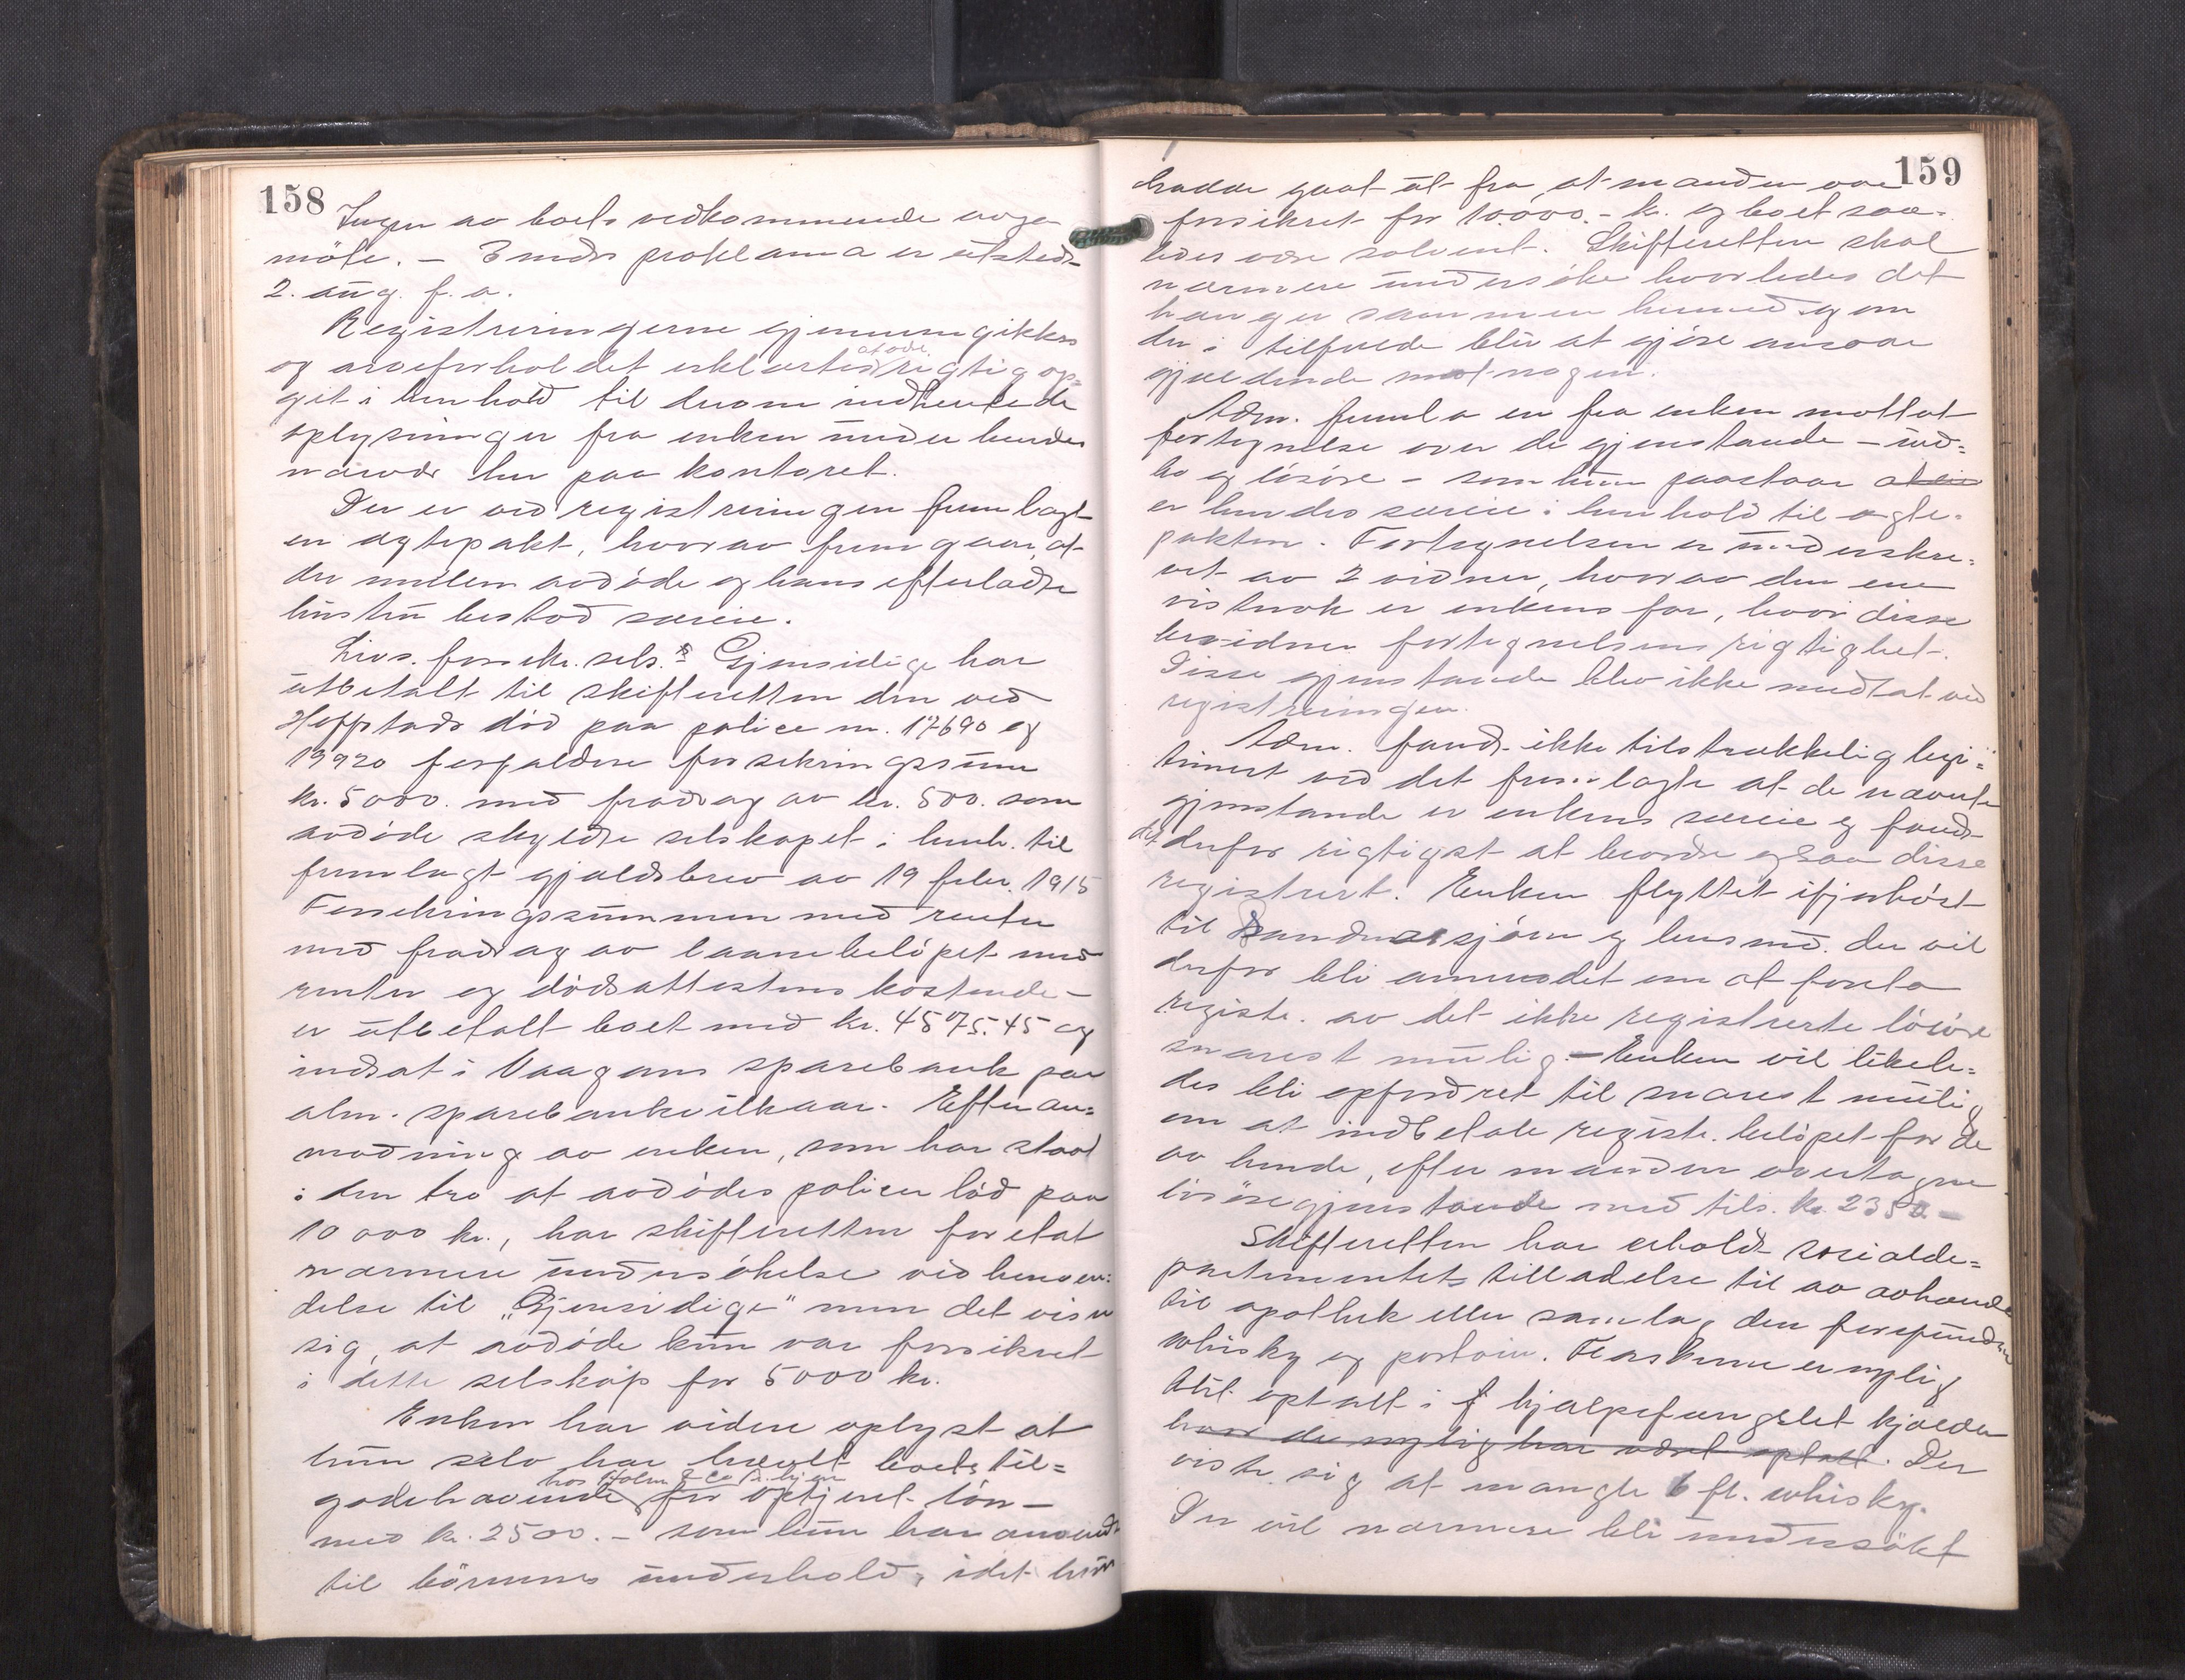 158
Ingen av boets vedkommende avga
möte. – 3 mdrs proklama er utstedt
2. aug. f. a.
Registreringerne gjennemgikkes
og arveforholdet erklærtes at være rigtig op=
git i henhold til derom indhentede
oplysninger fra enken under hendes
nærvær her paa kontoret.
Der er ved registreringen fremlagt
en egtepakt, hvorav fremgaar, at
der mellem avdöde og hans efterladte
hustru bestod særeie.
Livs.forsikr.sels. Gjensidige har
utbetalt til skifteretten den ved
Hopstads död paa police nr. 17690 og
19920 forfaldne forsikringssum
kr. 5000. med fradrag av kr. 500. som
avdöde skyldte selskapet i henh. til
fremlagt gjældsbrev av 19 febr. 1915
Forsikringssummen med renter
med fradrag av laanebelöpet med
renter og dödsattestens kostende –
er utbetalt boet med kr. 4575.45 og
indsat i Vaagans sparebank paa
alm. sparebankvilkaar. Efter an=
modning av enken, som har staat
i den tro at avdödes policer löd paa
10 000 kr., har skifteretten foretat
nærmere undersökelse ved henven=
delse til „Gjensidige" men det viser
sig, at avdöde kun var forsikret
i dette selskap for 5000 kr.
Enken har videre oplyst at
hun selv har hævet boets til=
godehavende hos Holm & Co for optjent lön –
med kr. 2500. – som hun har anvendt
til börnenes underhold, idet hun
159
hadde gaat ut fra, at manden var
forsikret for 10.000.– kr. og boet saa=
ledes være solvent. Skifteretten skal
nærmere undersöke hvorledes det
hænger sammen hermed og om
der i tilfælde blir at gjöre ansvar
gjældende mot nogen.
Adm. fremla en fra enken mottat
fortegnelse over de gjenstande – ind=
bo og lösöre – som hun paastaar at
er hendes særeie i henhold til egte=
pakten. Fortegnelsen er underskre=
vet av 2 vidner, hvorav den ene
vistnok er enkens far, hvor disse
bevidner fortegnelsens rigtighet.
Disse gjenstande blev ikke medtat ved
registreringen.
Adm. fandt ikke tilstrækkelig legi=
timert ved det fremlagte at de nævnte
gjenstande er enkens særeie og fandt
det derfor rigtigst at begjære ogsaa disse
registrert. Enken flyttet ifjorhöst
til Sandnessjöen og lensmd. der vil
derfor bli anmodet om at foreta
registr. av det ikke registrerte lösöre
snarest mulig. – Enken vil likele=
des bli opfordret til snarest mulig
om at indbetale registr. belöpet for de
av hende, efter manden overtagne
lösöregjenstande med tils. kr. 2350 –
Skifteretten har erholdt socialde=
partementets tilladelse til av avhænde
til apothek eller samlag den forefundne
whisky og portvin. Flaskerne er nylig
blit optalt i hjælpefængslet kjælder
hvor de nylig har været optalt. Der
viste sig at mangle 6 fl. whisky.
Der vil nærmere bli undersökt